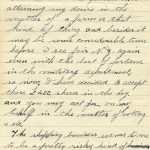 attaining my desire in the
matter of a farm or that
kind of thing and besides it
may be some considerable time
before I see fair N.Z. again
even with the best of fortune
in the military department,
so now I have decided to accept
those I have shares in the big
and you may act for on my
behalf in the matter of voting
etc.
The shipping business seems to me
to be a pretty risky kind of